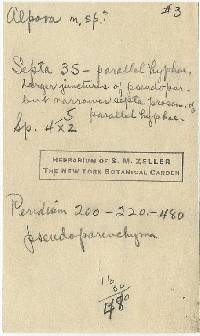 Alpova n. sp.? #3
Septa 35 - parallel hyphae.
Larger junctures of pseudo-par.
but narrower septa prosen. of
parallel hyphae.
Sp. 4 x 2.5
HERBARIUM OF S. M. ZELLER
THE NEW YORK BOTANICAL GARDEN
Peridium 200 - 220 - 480
pseudoparenchyma
16
30
480